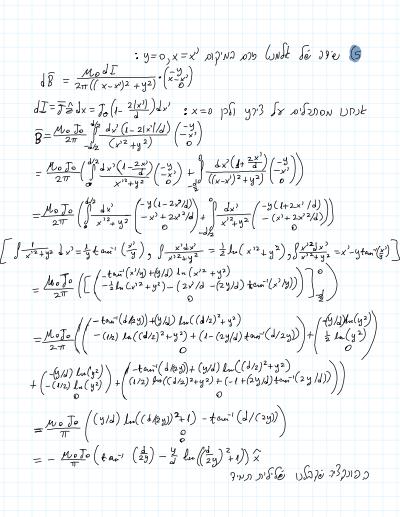 ⑤ שדה של אלמנט זרם במיקום x=x', y=0:
dB̄ = μ₀dI / 2π((x-x')²+y²) · (-y, x-x', 0)
dI = J̄·ẑ dx = J₀(1-2|x'|/d)dx'
אנחנו מסתכלים על ציר y ולכן x=0:
B̄ = μ₀J₀/2π ∫_{-d/2}^{d/2} dx'(1-2|x'|/d)/(x'²+y²) (-y, -x', 0)
= μ₀J₀/2π (∫₀^{d/2} dx'(1-2x'/d)/(x'²+y²) (-y, -x', 0) + ∫_{-d/2}^0 dx'(1+2x'/d)/((x-x')²+y²) (-y, -x', 0))
= μ₀J₀/2π (∫₀^{d/2} dx'/(x'²+y²) (-y(1-2x'/d), -x'+2x'²/d, 0) + ∫_{-d/2}^0 dx'/(x'²+y²) (-y(1+2x'/d), -(x'+2x'²/d), 0))
[∫ 1/(x'²+y²) dx' = 1/y tan⁻¹(x'/y), ∫ x'dx'/(x'²+y²) = ½ ln(x'²+y²), ∫ x'²dx'/(x'²+y²) = x'-y tan⁻¹(x'/y)]
= μ₀J₀/2π ([(-tan⁻¹(x'/y)+(y/d) ln(x'²+y²),
= μ₀J₀/2π ((-tan⁻¹(d/2y)+(y/d) ln((d/2)²+y²), -(1/2) ln((d/2)²+y²)+(1-(2y/d) tan⁻¹(d/2y)), 0) + (-(y/d) ln(y²), ½ ln(y²), 0)
+ (-(y/d) ln(y²), -(1/2) ln(y²), 0) + (-tan⁻¹(d/2y)+(y/d) ln((d/2)²+y²), (1/2) ln((d/2)²+y²)+(-1+(2y/d) tan⁻¹(d/2y)), 0))
= μ₀J₀/π ((y/d) ln((d/2y)²+1) - tan⁻¹(d/(2y)), 0, 0)
= - μ₀J₀/π (tan⁻¹(d/2y) - y/d ln((d/2y)²+1)) x̂
הפונקציה שקיבלנו שלילית תמיד